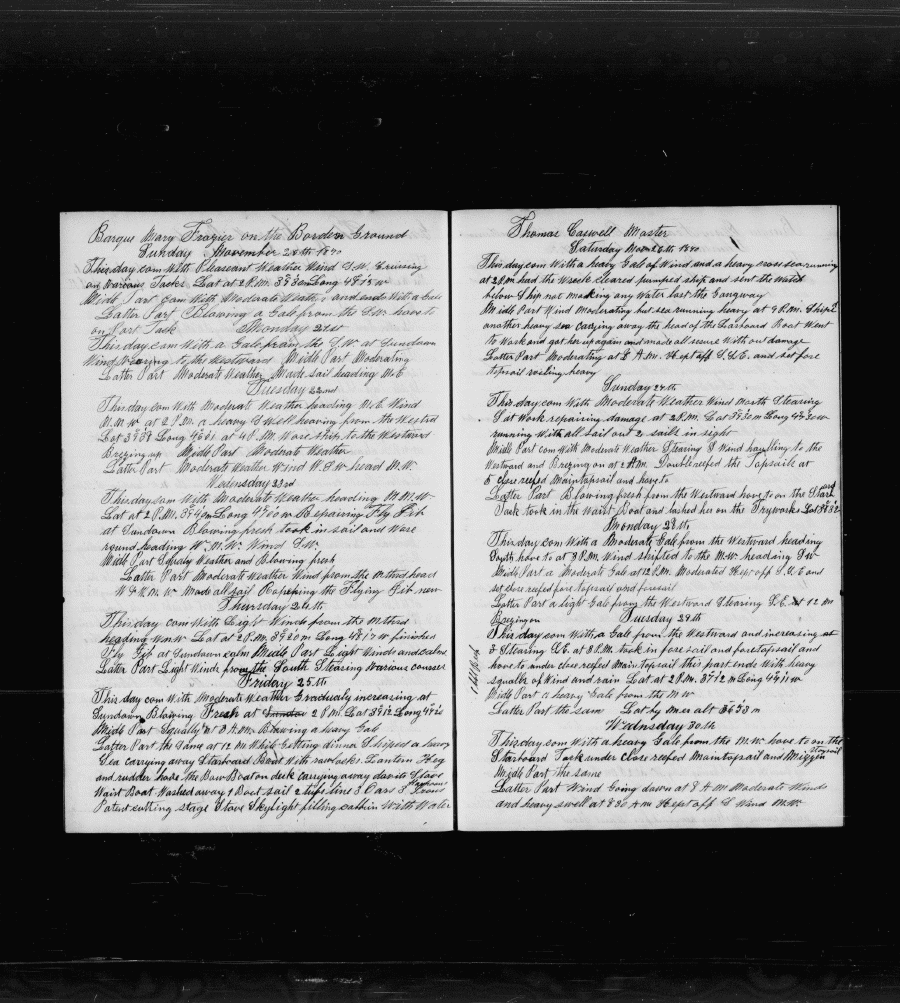 Barque Mary Frazier on the Borden Ground
Sunday November 20th 1870
This day com With Pleasant Weather Wind S.W. Cruising
on Various Tacks Lat at 2 P.M. Long
Midle Part Com With Moderate Weath, and ends With a Gale
Latter Part Blowing a Gale from the S.W. hove to
on Port Tack Monday 21st
This day com With a Gale from the S.W. at Sundown
Wind Vearing to the Westward Midle Part Modrating
Latter Part Moderate Weather Made sail heading N.E
Tuesday 22nd
This day com With Moderate Weather heading N.E Wind
N.N.W at 2 P.M. a heavy Swell heaving from the Westrd
Lat Long at 4 P.M. Wore ship to the Westward
Brezing up Midle Part Modrate Weather
Latter Part Moderate Weather Wind W.S.W head N.W.
Wednesday 23rd
This day com With Moderate Weather heading N.N.W
Lat at 2 P.M. Long Repairing Fly Jib
at Sundown Blowing fresh took in sail and Wore
round heading W.N.W. Wind S.W.
Midle Part Squaly Weather and Blowing fresh
Latter Part Moderate Weather Wind from the Nthrd head
W & N.W Made all sail Roping the Flying Jib new
Thursday 24th
This day com With Light Winds from the Nthrd
heading W.N.W Lat at 2 P.M. Long finished
Fly Jib at Sundown calm Midle Part Light Winds and calms
Latter Part Light Winds from the South Stearing Various courses
Friday 25th
This day com With Moderate Weather Gradualy increasing at
Sundown Blowing Fresh at 2 P.M. Lat Long
Midle Part Squaly at 8 A.M. Blowing a heavy Gale
Latter Part the Same at 12 M While Getting dinner Shiped a heavy
Sea carrying away Starboard Boat With rowlocks Lantern Keg
and rudder hove the Bow Boat on deck carrying away davits Stove
Waist Boat Washed away 1 Boat sail 2 tubs line 3 Oars 3 Irons
Patent cutting stage Stove Skylight filling cabbin With Water
Thomas Caswell Master
Saturday Nov 26th 1870
This day com With a heavy Gale of Wind and a heavy cross sea running
at 2 P.M. had the Wreck cleared pumped ship and sent the Watch
below Ship not making any Water lost the Gangway
Midle Part Wind Moderating but sea running heavy at 9 P.M. Shiped
another heavy sea carrying away the head of the Larboard Boat Went
to Work and got her up again and made all secure With out damage
Latter Part Moderating at 8 A.M. Kept off S.S.E. and set fore
topsail rooling heavy
Sunday 27th
This day com With Moderate Weather Wind North Stearing
S at Work repairing damage at 2 P.M. Lat Long
running With all sail out 2 sails in sight
Midle Part com With Moderate Weather Stearing S Wind hawlling to the
Westward and Brezing on at 2 A.M. Double reefed the Topsails at
5 close reefed Maintopsail and hove to
Latter Part Blowing fresh from the Westward hove to on the Starbord
Tack took in the Waist Boat and lashed her on the Tryworks Lat
Monday 28th
This day com With a Moderate Gale from the Westward heading
South hove to at 8 P.M. Wind shifted to the N.W heading S W
Midle Part a Moderate Gale at 12 P.M. Moderated Kept off S.S.E and
set close reefed fore topsail and foresail
Latter Part a light Gale from the Westward Stearing S.E. at 12 M
Brezing on Tuesday 29th
This day com With a Gale from the Westward and increasing at
Stearing S.E. at 8 P.M. took in fore sail and foretopsail and
hove to under close reefed Main topsail this part ends With heavy
squalls of Wind and rain Lat at 2 P.M. 37 12 N Long
Midle Part a heavy Gale from the N.W
Latter Part the same Lat by Mer alt
Wednsday 30th
This day com With a heavy Gale from the N.W. hove to on the
Starboard Tack under close reefed Maintopsail and Mizzen staysail
Midle Part the same
Latter Part Wind Going down at 8 A M Moderate Winds
and heavy swell at 8 30 A.M Kept off S Wind N.W.